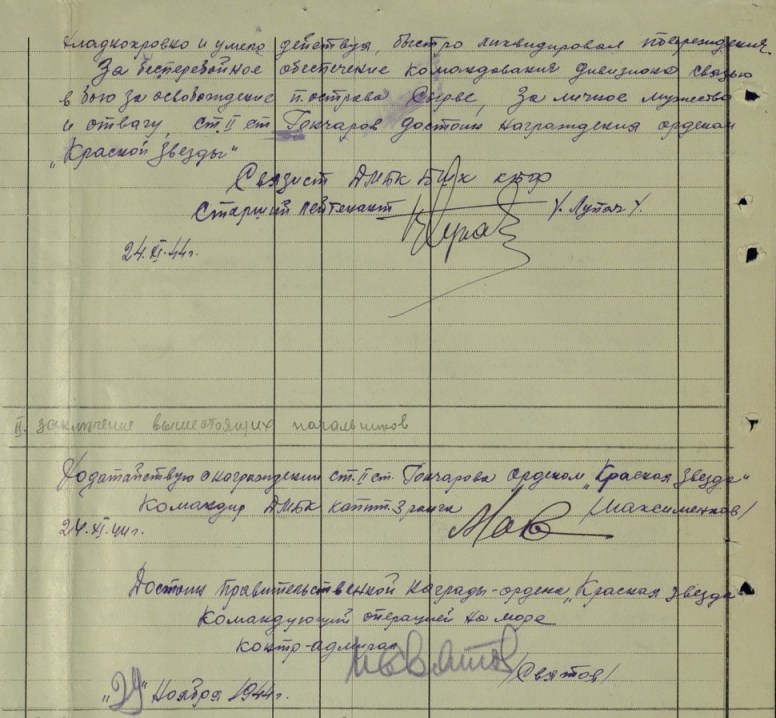 хладнокровно и умело действуя, быстро ликвидировал повреждения.
За бесперебойное обеспечение командования дивизиона связью
в бою за освобождение п.острова Сырве, за личное мужество
и отвагу, ст. II ст Гончаров достоин награждения орденом
„Красной Звезды"
Связист ДМБК БШх КБФ
Старший лейтенант /. Лупач /.
24.XI.44г.
II. заключение вышестоящих начальников
Ходатайствую о награждении ст. II ст. Гончарова орденом „Красная Звезда"
Командир ДМБК капт. 3 ранга /Максименков/
24.XI.44г.
Достоин Правительственной награды-ордена „Красная звезда
Командующий операцией на море
контр-адмирал
/Святов/
„29" Ноября 1944г.